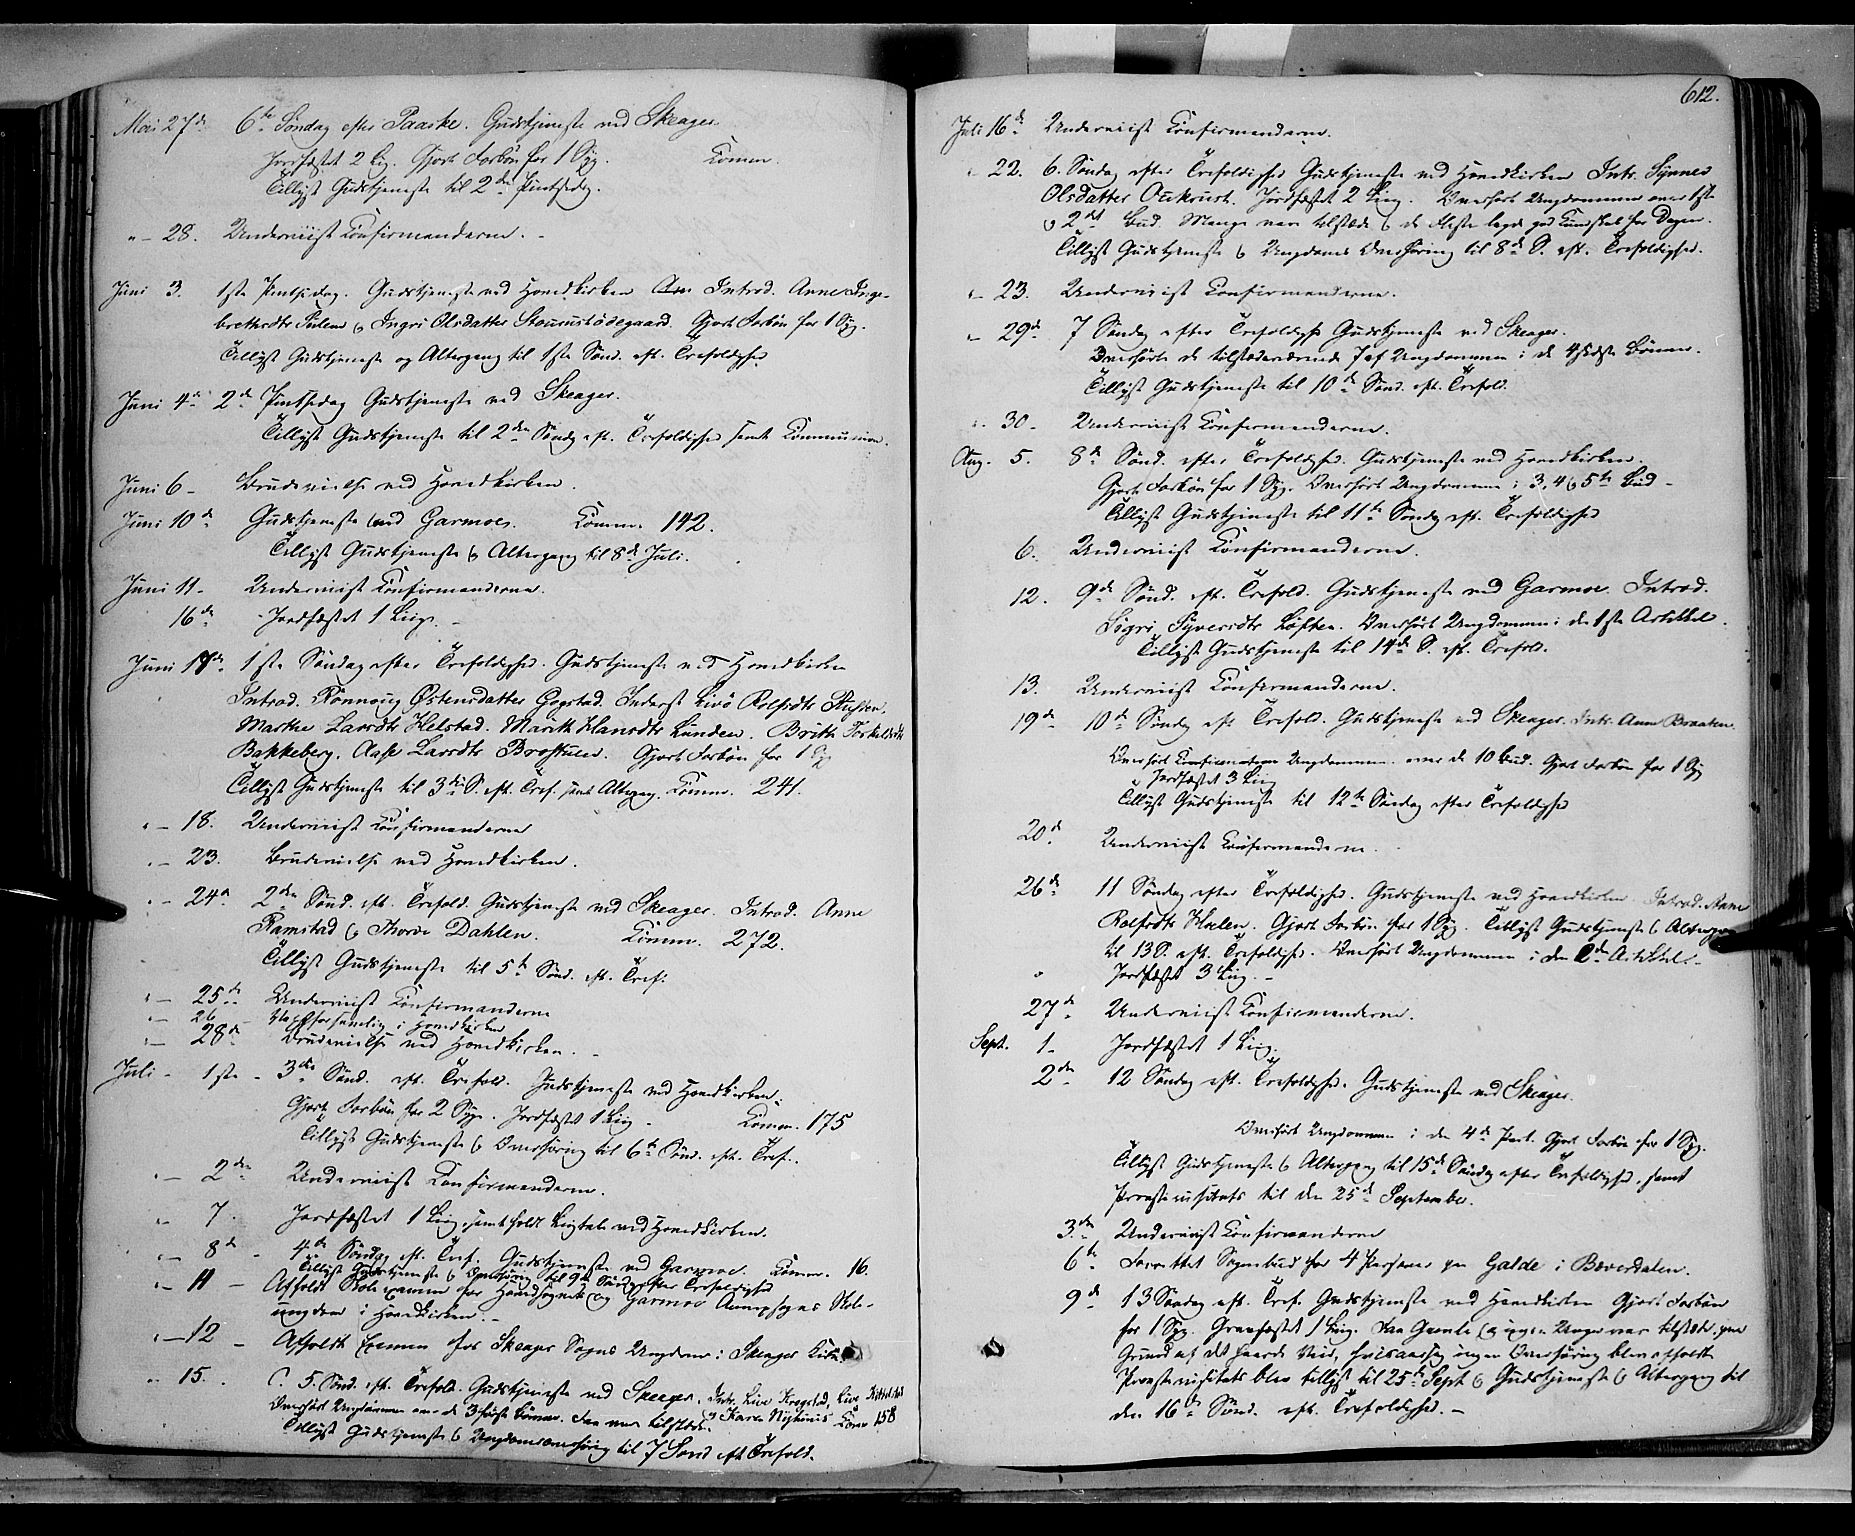 Mai 27de 6te Søndag efter Paaske. Gudstjeneste ved Skeager.
Jordfæstet 2 Lig. Gjort Forbøn for 1 Syg. Komm.
Tillyst Gudstjeneste til 2den Pintsedag.
" - 28. Underviist Confirmanderne. -
Juni 3. 1ste Pintsedag. Gudstjeneste ved Hovedkirken Introd. Anne Inge-
brethsdtr Sulem og Ingri Olsdatter Stourustødegaard. Gjort Forbøn for 1 Syg.
Tillyst Gudstjeneste og Altergang til 1ste Sønd. eft. Trefoldighed
Juni 4de 2den Pintsedag Gudstjeneste ved Skeager.
Tillyst Gudstjeneste til 2den Søndg eft. Trefoldighed samt Communion.
Juni 6 - Brudevielse ved Hovedkirken.
Juni 10de Gudstjeneste ved Garmoe. Komm. 142.
Tillyst Gudstjeneste og Altergang til 8de Juli.
Juni 11 - Underviist Confirmanderne.
16de - Jordfæstet 1 Liig. -
Juni 17de 1ste Søndag efter Trefoldighed. Gudstjeneste ved Hovedkirken
Introd. Rønnoug Østensdatter Gogstad. Inderst Livò Rolfsdtr
Marthe Larsdtr Helstad. Marith Hansdtr Lunden. Brith Torkildsdtr
Bakkeberg. Aase Larsdtr Brostuen. Gjort Forbøn for 1 Syg
Tillyst Gudstjeneste til 3die S. eft. Tref. samt Alterg. Komm. 241.
" - 18. Underviist Confirmanderne
" - 23. Brudevielse ved Hovedkirken.
" - 24de 2den Sønd. eft. Trefold. Gudstjeneste ved Skeager. Introd. Anne
Ramstad og Thore Dahlen. Komm. 272.
Tillyst Gudstjeneste til 5te Sønd. eft. Tref.
" - 25de Underviist Confirmanderne
" - 26 - Valgforsamling i Hovedkirken
" - 28de Brudevielse ved Hovedkirken. -
Juli - 1ste - 3die Sønd. eft. Trefold. Gudstjeneste ved Hovedkirken.
Gjort Forbøn for 2 Syge. Jordfæstet 1 Liig - Komm. 175
Tillyst Gudstjeneste og Overhøring til 6te Sønd. eft. Tref.
" - 2den Underviist Confirmanderne.
" - 7. Jordfæstet 1 Liig, samt holdt Ligtale ved Hovedkirken.
" - 8de - 4de Søndag eft. Tref. Gudstjeneste ved Garmoe. Komm. 16.
Tillyst Gudstjeneste og Overhøring til 9de Søndag efter Trefoldighed
" - 11 - Afholdt Skole-Examen for Hovedsognets og Garmoe Annexsogns Skole-
ungdom i Hovedkirken. -
" - 12 - Afholdt Examen for Skeager Sogns Ungdom i Skeager Kirke.
" 15. 5. Sønd. eft. Trefold. Gudstjeneste ved Skeager. Intr. Live Kregstad, Live Kittelstad
Overhørt Ungdommen over de 3 første Bønner. Faa var tilstede. og Karen Komm 158
Tillyst Gudstjeneste og Ungdomsoverhøring til 7 Sønd eft Trefold.
612.
Juli 16de Underviist Confirmanderne.
" 22. 6. Søndag efter Trefoldighed Gudstjeneste ved Hovedkirken Intr. Synnev
Olsdatter Aukrust. Jordfæstet 2 Liig. Overhørt Ungdommen over 1ste
og 2det Bud. Mange vare tilstede og de fleste lagde god Kundskab for Dagen.
Tillyst Gudstjeneste og Ungdoms Overhøring til 8de S. eft. Trefoldighed.
" - 23. Underviist Confirmanderne.
" 29de 7 Søndag efter Trefoldighed Gudstjeneste ved Skeager.
Overhørte de tilstedeværende 7 af Ungdommen i de 4 sidste Bønner.
Tillyst Gudstjeneste til 10de Sønd. eft. Trefold.
" 30 - Underviist Confirmanderne.
Aug. 5. 8de Sønd. efter Trefoldighed. Gudstjeneste ved Hovedkirken.
Gjort Forbøn for 1 Syg. Overhørt Ungdommen i 3, 4 og 5te Bud -
Tillyst Gudstjeneste til 11te Søndg eft. Trefoldighed
6. Underviist Confirmanderne.
12. 9de Sønd. eft. Trefold. Gudstjeneste ved Garmoe. Introd.
Sigri Syversdtr Løften. Overhørt Ungdommen i den 1ste Artikkel.
Tillyst Gudstjeneste til 14de S. eft. Trefold.
13. Underviist Confirmanderne.
19de 10de Søndg eft Trefold. Gudstjeneste ved Skeager. Intr. Anne Braaten.
Overhørt Ungdommen over de 10 Bud. Gjort Forbøn for 1 Syg
og Jordfæstet 3 Liig
Tillyst Gudstjeneste til 12te Søndag efter Trefoldighed
20de Underviist Confirmanderne.
26de 11 Søndag efter Trefoldighed. Gudstjeneste ved Hovedkirken. Introd. Anne
Rolfsdtr Holen. Gjort Forbøn for 1 Syg. Tillyst Gudstjeneste og Altergang
til 13 S. eft. Trefoldighed. Overhørt Ungdommen i den 2den Artikkel. -
" Jordfæstet 3 Liig. -
27de Underviist Confirmanderne.
Sept. 1 - Jordfæstet 1 Liig.
2den 12 Søndag eft. Trefoldighed. Gudstjeneste ved Skeager.
Overhørt Ungdommen i den 4de Part. Gjort Forbøn for 1 Syg.
Tillyst Gudstjeneste og Altergang til 15de Søndag efter Trefoldighed, samt
Provstevisitats til den 25de September.
3die Underviist Confirmanderne
6te Forrettet Sognebud for 4 Personer paa Galde i Bøverdalen.
9de 13 Søndag eft. Tref. Gudstjeneste ved Hovedkirken Gjort Forbøn
for 1 Syg. Gravfæstet 1 Liig. Faa Gamle og ingen Unge var tilstede, paa
Grund af det haarde Veir, hvisaarsag ingen Overhøring blev afholdt
Provstevisitats blev tillyst til 25te Sept og Gudstjeneste og Altergang til
den 16de Sønd. eft. Trefoldighed. -